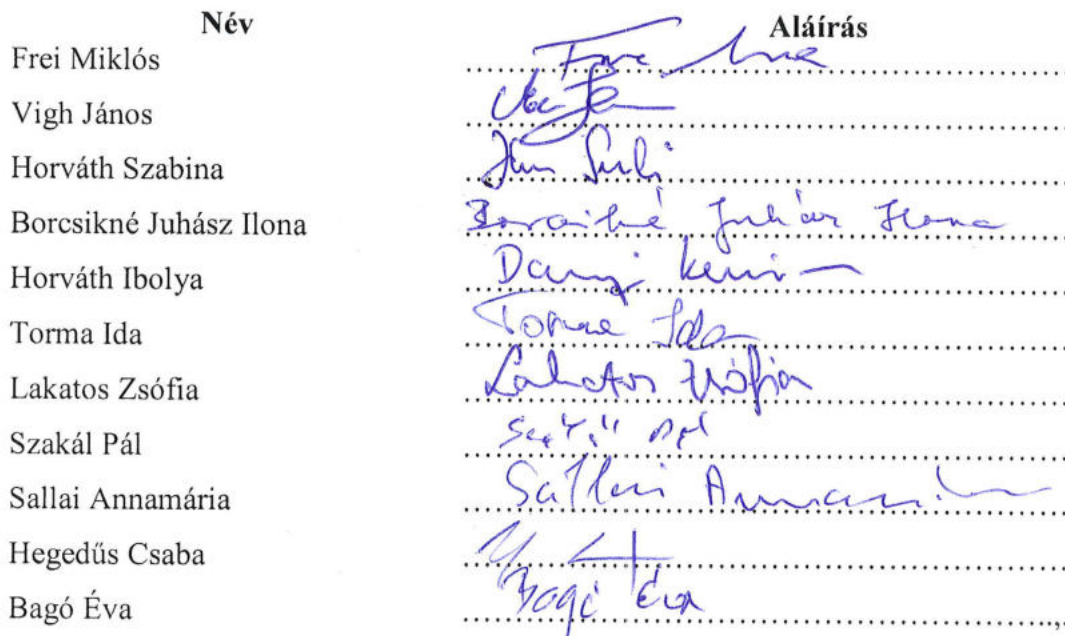 Név Aláírás
Frei Miklós
Vigh János
Horváth Szabina
Borcsikné Juhász Ilona Borcsikné Juhász Ilona
Horváth Ibolya
Torma Ida Torma Ida
Lakatos Zsófia Lakatos Zsófia
Szakál Pál
Sallai Annamária Sallai Annamária
Hegedűs Csaba
Bagó Éva Bagó Éva